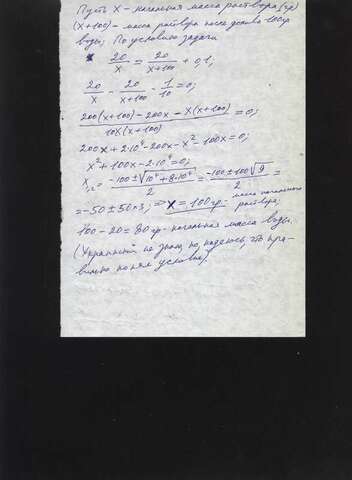 Пусть X - начальная масса раствора (гр)
(X+100) - масса раствора после долива 100гр
воды; По условию задачи
20/X = 20/(X+100) + 0,1;
20/X - 20/(X+100) - 1/10 = 0;
(200(X+100) - 200X - X(X+100))/(10X(X+100)) = 0;
200X + 2·10⁴ - 200X - X² - 100X = 0;
X² + 100X - 2·10⁴ = 0;
X₁,₂ = (-100 ± √(10⁴ + 8·10⁴))/2 = (-100 ± 100√9)/2 =
= -50 ± 50·3; ⇒ X = 100 гр - масса начального раствора;
100 - 20 = 80 гр - начальная масса воды.
(Украинский не знаю, но, надеюсь, что пра-
вильно понял условие).